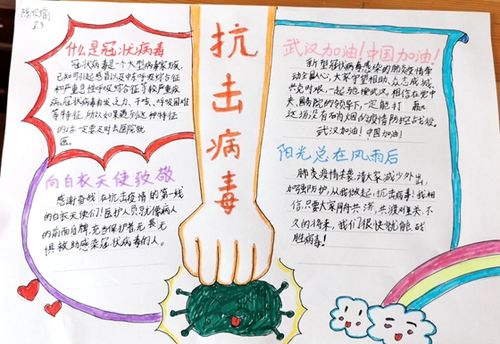 3.3
什么是冠状病毒
冠状病毒是一个大型病毒家族,
已知可引起感冒以及中东呼吸综合征
和严重急性呼吸综合征等较严重疾
病。冠状病毒有发乏力、干咳、呼吸困难
等特征,所以如果遇到这种特征
的话一定要及时去医院就
医。
抗击病毒
武汉加油!中国加油!
新型冠状病毒感染的肺炎疫情牵
动全国人心,大家守望相助、众志成城、
共克时艰,一起驰援武汉。相信在党中
央、国务院的领导下,一定能打赢
这场没有硝烟的疫情防控占贡战。
武汉加油!中国加油!
向白衣天使致敬
感谢奋战在抗击疫情的第一线
的白衣天使们!医护人员就像病人
的前面盾牌,充当保护者无畏无
惧救助感染冠状病毒的人。
阳光总在风雨后
肺炎疫情去袭,请大家减少外出,
加强防护,从我做起,抗击病毒!我相
信,只要大家同舟共济,共渡难关,不
久的将来,我们很快就能战
胜病毒!